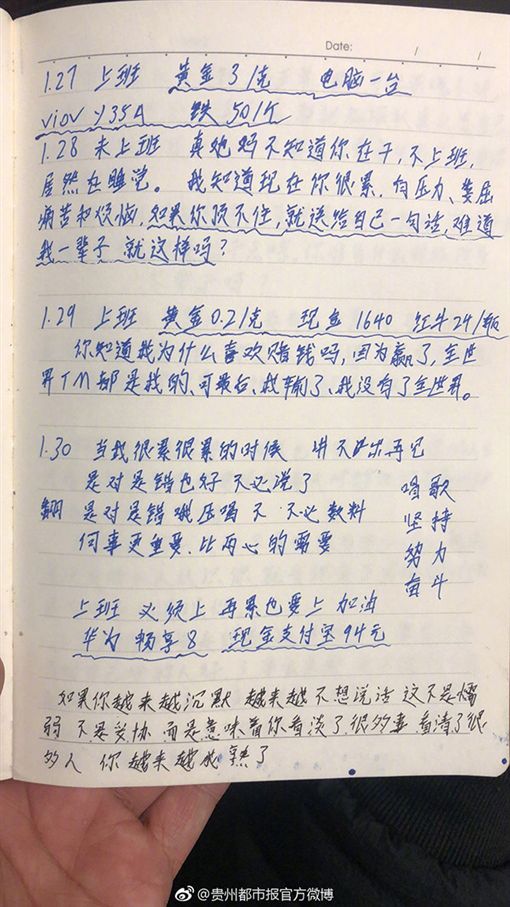 Date: / /
1.27 上班 黄金31克 电脑一台
viov y35A 铁 501个
1.28 未上班 真他妈不知道你在干,不上班,
居然在睡觉。 我知道现在你很累,有压力、委屈
痛苦和烦恼,如果你顶不住,就送给自己一句话,难道
我一辈子 就这样吗?
1.29 上班 黄金0.21克 现金 1640 红牛24/瓶
你知道我为什么喜欢赌钱吗,因为赢了,全世
界TM都是我的、可最后、我输了、我没有了全世界。
1.30 当我很累很累的时候 讲不出再见
是对是错也好 不必说了
是对是错 压 不 不必
何事更重要.比两心的需要
唱歌
坚持
努力
奋斗
上班 必须上 再累也要上 加油
华为 畅享8 现金支付宝94元
如果你越来越沉默 越来越不想说话 这不是懦
弱 不是妥协 而是意味着你看淡了很多事 看清了很
多人 你越来越成熟了
@贵州都市报官方微博